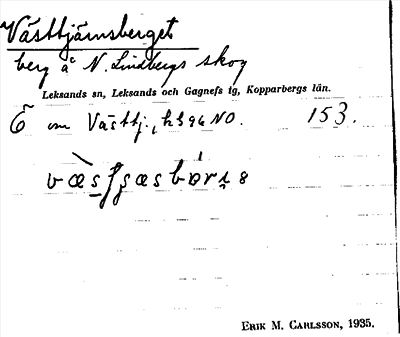 Västtjärnsberget
berg å N. Lindbergs skog
Leksands sn, Leksands och Gagnefs tg, Kopparbergs län.
E om Västtj., 153.
ERIK M. CARLSSON, 1935.